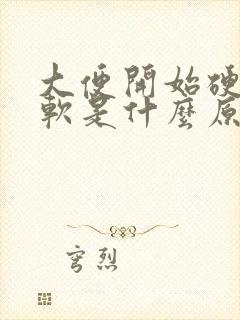 大便開始硬
軟是什麼原
穹烈